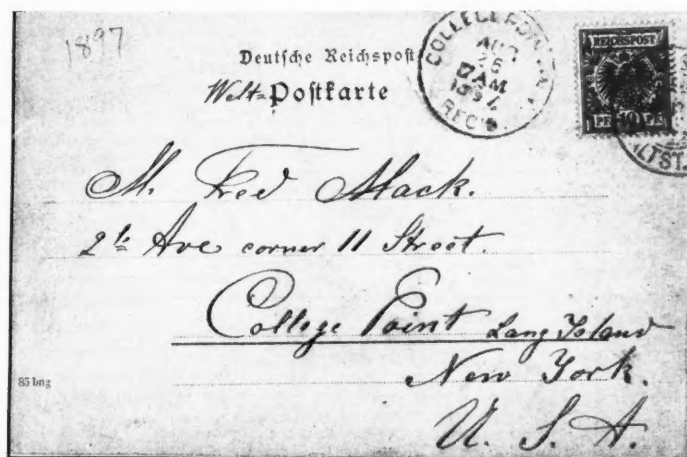 1897
Deutsche Reichspost
Welt=Postkarte
COLLEGE POINT
AUG
25
REC'D
REICHSPOST
PF 10 PF
M. Fred Mack.
2th Ave corner 11 Street.
College Point Lang Island
New York.
U. S. A.
85 bng